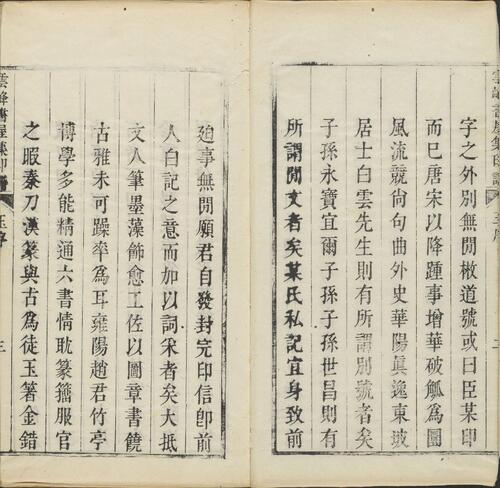 字之外別無閒楸道號或曰臣某印
而巳唐宋以降踵事增華破觚為圜
風流競尙句曲外史華陽眞逸東坡
居士白雲先生則有所謂別號者矣
子孫永寶宜爾子孫子孫世昌則有
所謂閒文者矣某氏私記宜身致前
迫事無閒願君自發封完印信卽前
人白記之意而加以詞采者矣大抵
文人筆墨藻飾愈工佐以圖章書鐃
古雅未可躁率為耳雍陽趙君竹亭
博學多能精通六書情耽篆籀服官
之暇秦刀漢篆與古為徒玉箸金錯
雲峰書屋集印
玉序
三